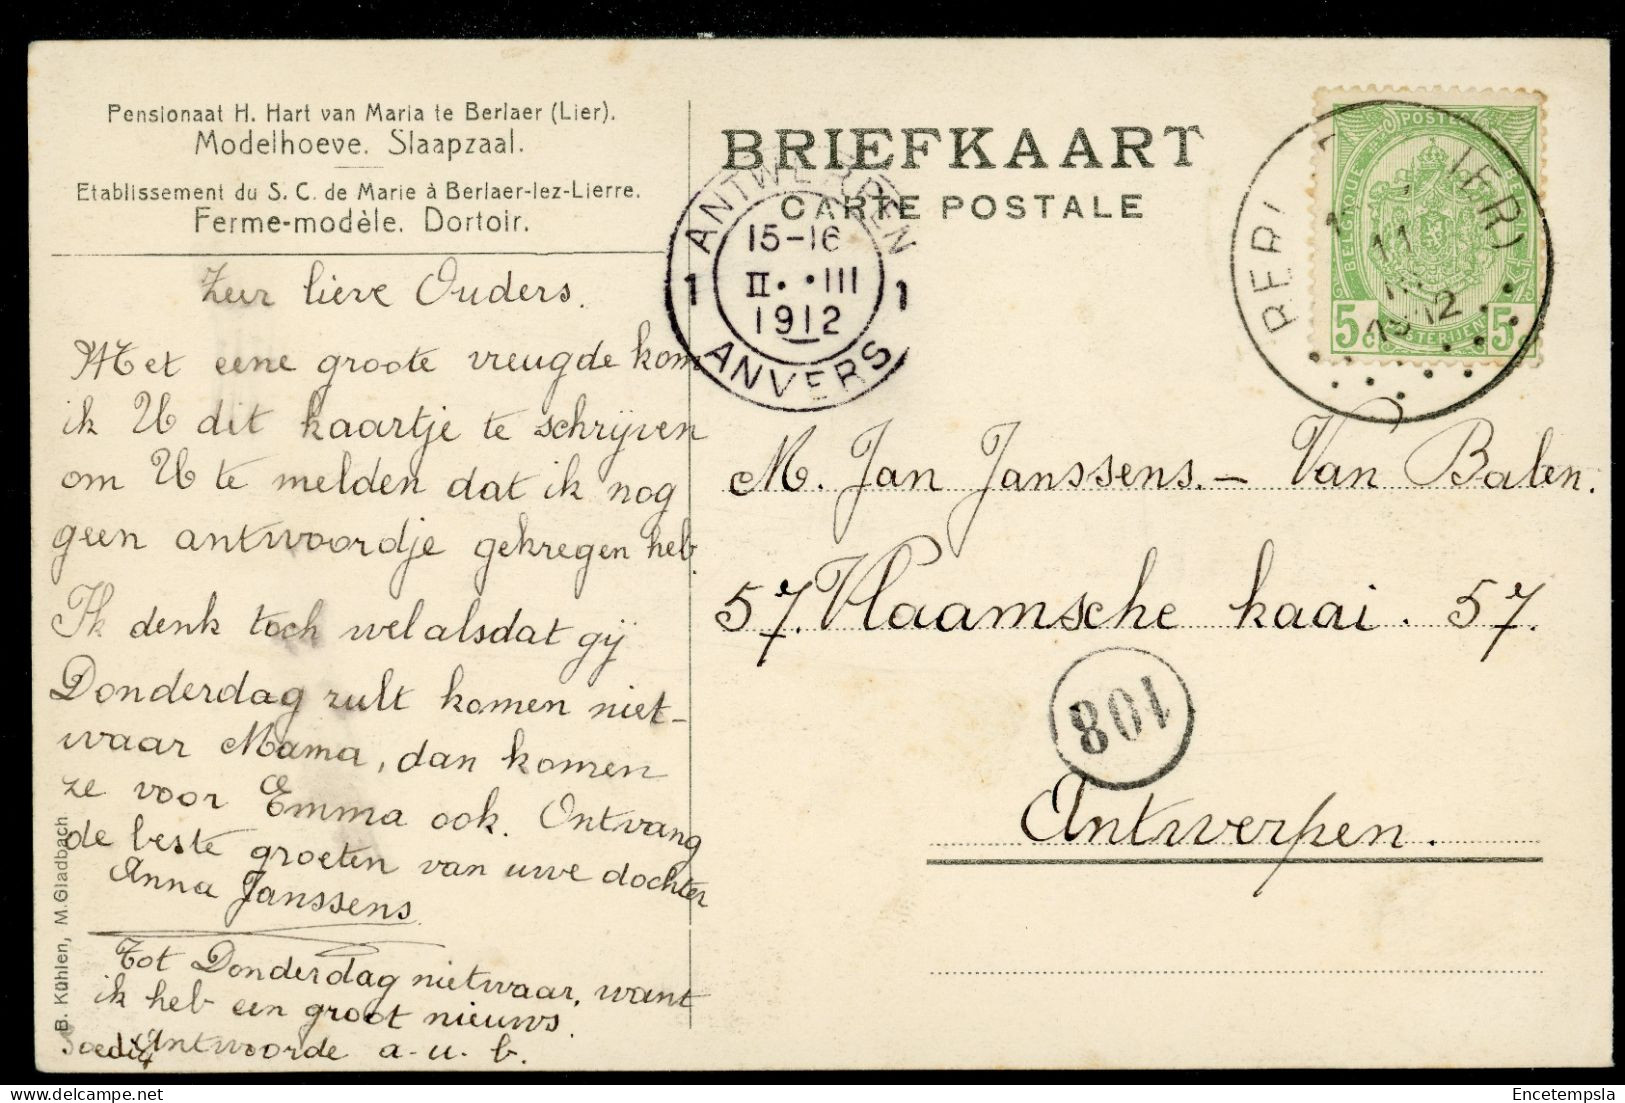 Pensionaat H. Hart van Maria te Berlaer (Lier).
Modelhoeve. Slaapzaal.
Etablissement du S. C. de Marie à Berlaer-lez-Lierre.
Ferme-modèle. Dortoir.
Zeer lieve Ouders.
Met eene groote vreugde kom
ik U dit kaartje te schrijven
om U te melden dat ik nog
geen antwoordje gekregen heb.
Ik denk toch wel alsdat gij
Donderdag zult komen niet-
waar Mama, dan komen
ze voor Emma ook. Ontvang
de beste groeten van uwe dochter
Anna Janssens.
Tot Donderdag nietwaar, want
ik heb een groot nieuws.
Antwoorde a. u. b.
B. Kühlen, M. Gladbach.
BRIEFKAART
CARTE POSTALE
ANTWERPEN
15-16
II. .III
1912
1 1
ANVERS
POSTE
BELGIQUE
5c 5c
M. Jan Janssens. - Van Balen.
57. Vlaamsche kaai. 57.
108
Antwerpen.
Encetempsla